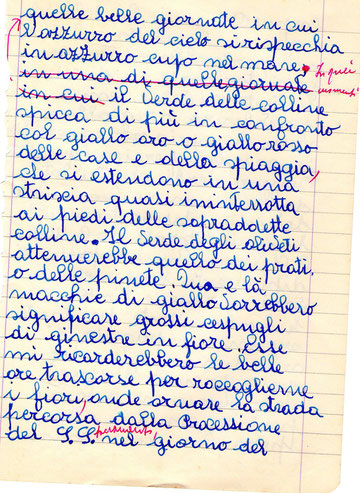 quelle belle giornate in cui
l'azzurro del cielo si rispecchia
in azzurro cupo nel mare.
in una di quelle giornate In quei
in cui il verde delle colline momenti
spicca di più in confronto
col giallo oro o giallo rosso
delle case e della spiaggia,
che si estendono in una
striscia quasi ininterrotta
ai piedi delle sopraddette
colline. Il verde degli oliveti
attenuerebbe quello dei prati,
o delle pinete. Qua e là
macchie di giallo vorrebbero
significare grossi cespugli
di ginestre in fiore. Esse
mi ricorderebbero le belle
ore trascorse per raccoglierne
i fiori, onde ornare la strada
percorsa dalla Processione
del S. S. Sacramento, nel giorno del